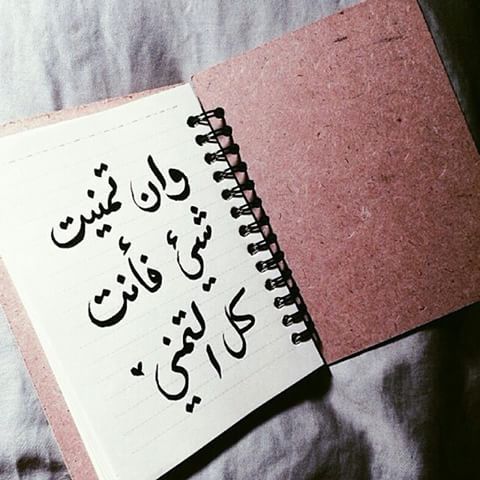 وان تمنيت
شيئ فأنت
كل التمني